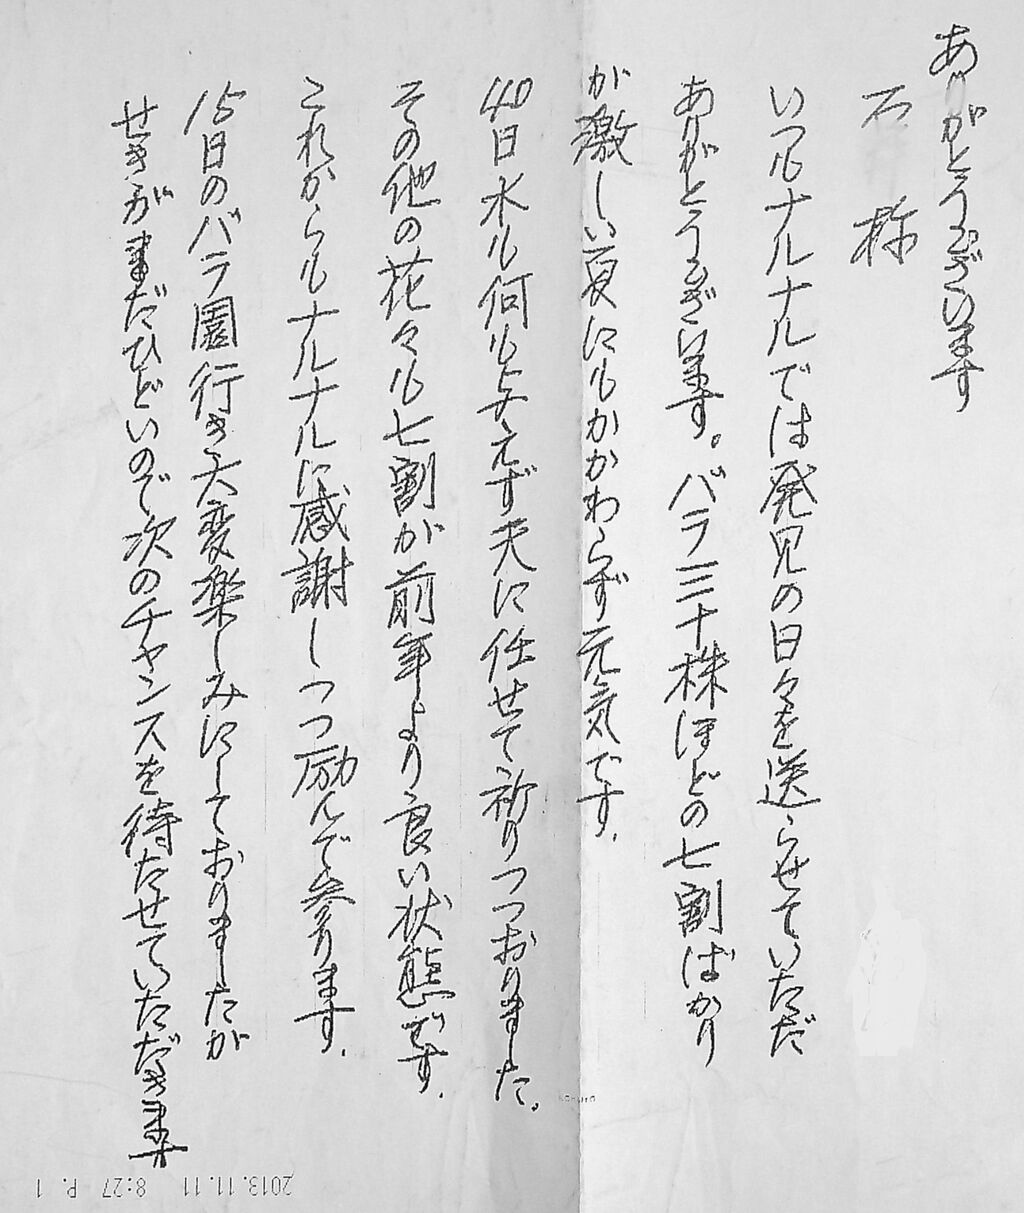 ありがとうございます
石
いつもナルナルでは発見の日々を送らせていただ
ありがとうございます。バラ三十株ほどの七割ばかり
が激しい夏にもかかわらず元気です.
40日水も何も与えず天に任せて祈りつつおりました。
その他の花々も七割が前年より良い状態です.
これからもナルナルに感謝しつつ励んで参ります.
15日のバラ園行き大変楽しみにしておりましたが
せきがまだひどいので次のチャンスを待たせていただきます
2013.11.11 8:27 P. 1